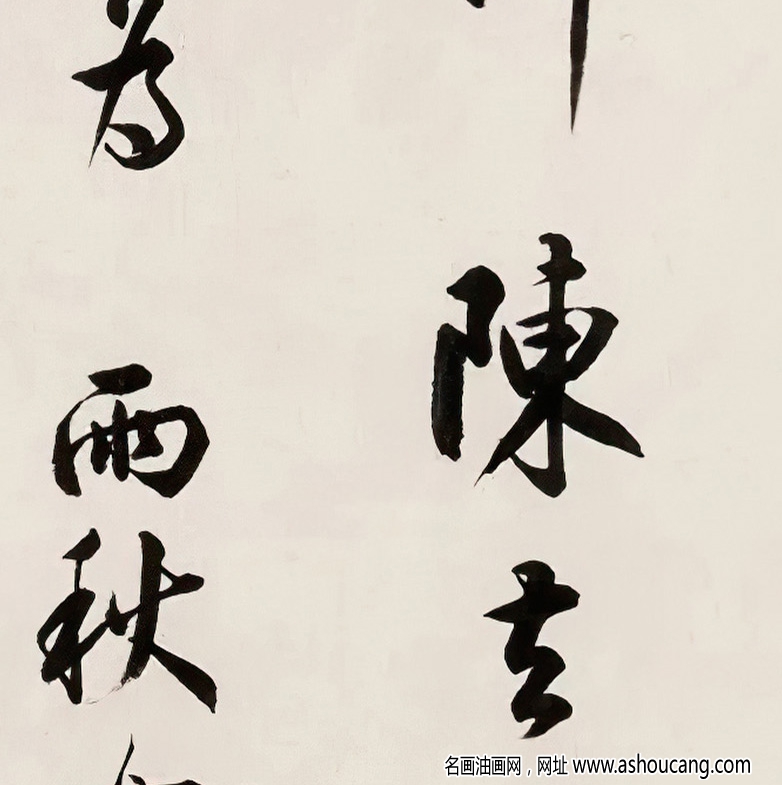 陳去
為雨秋
名画油画网，网址 www.ashoucang.com